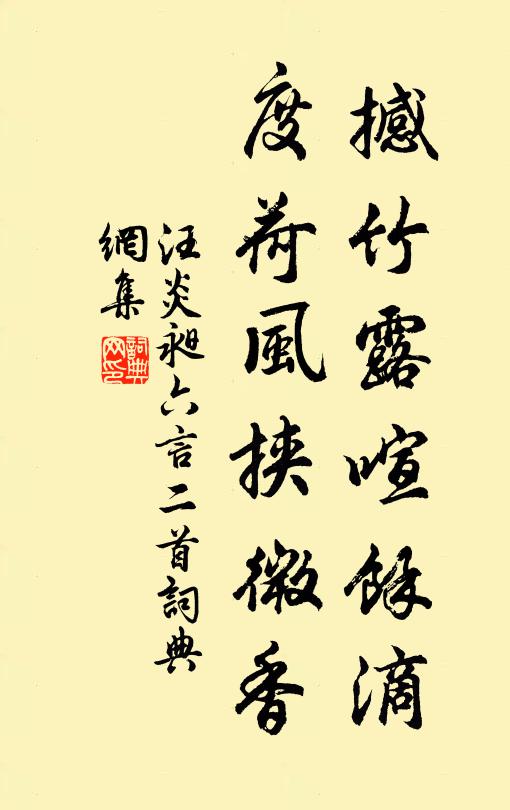 撼竹露喧餘滴
度荷風挾微香
汪炎昶六言二首詞典
網集
詞典
网印